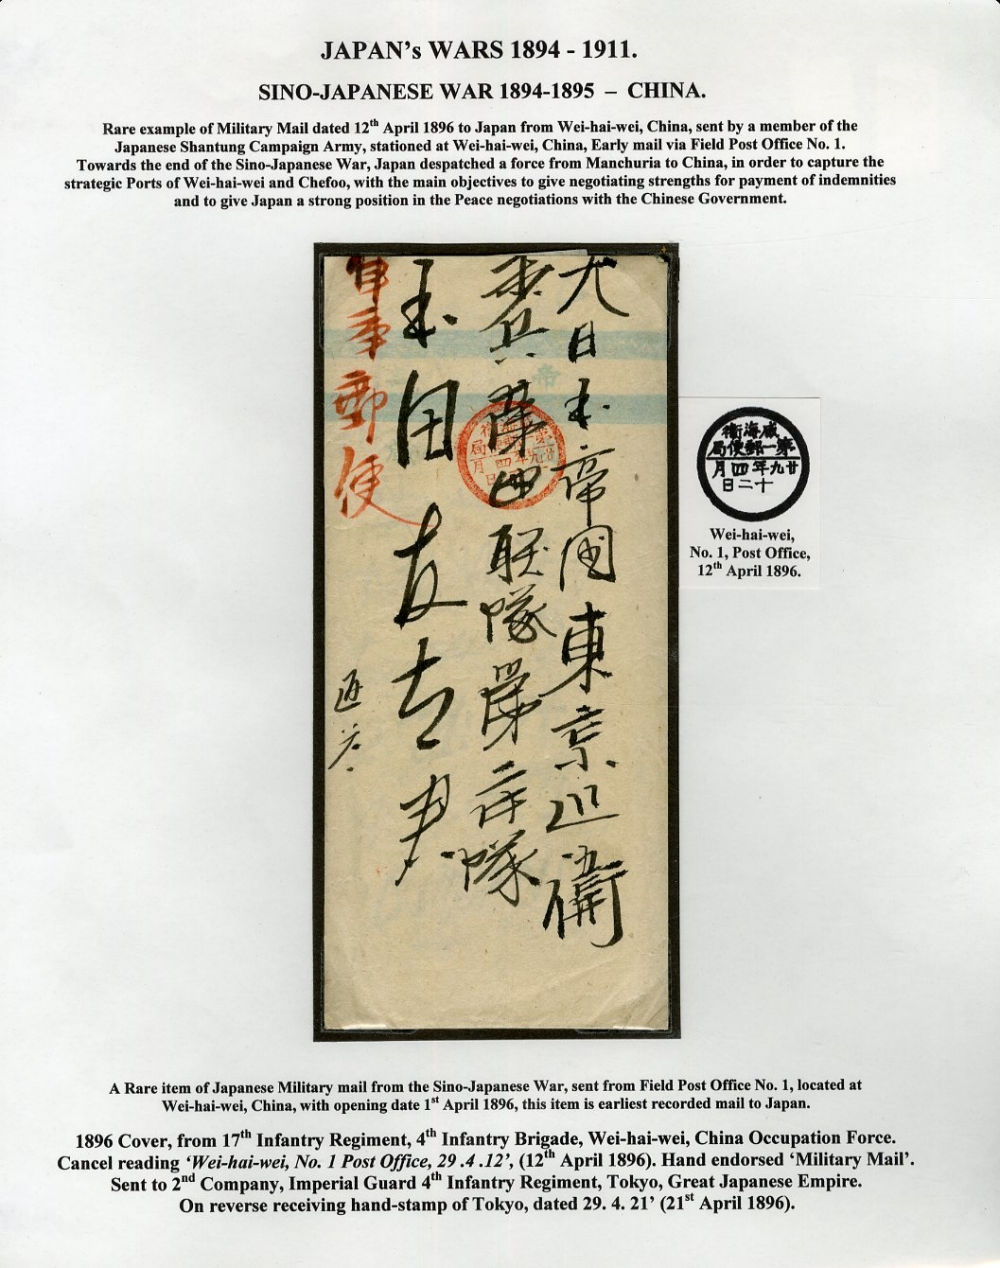 JAPAN's WARS 1894 - 1911.
SINO-JAPANESE WAR 1894-1895 – CHINA.
Rare example of Military Mail dated 12th April 1896 to Japan from Wei-hai-wei, China, sent by a member of the
Japanese Shantung Campaign Army, stationed at Wei-hai-wei, China, Early mail via Field Post Office No. 1.
Towards the end of the Sino-Japanese War, Japan despatched a force from Manchuria to China, in order to capture the
strategic Ports of Wei-hai-wei and Chefoo, with the main objectives to give negotiating strengths for payment of indemnities
and to give Japan a strong position in the Peace negotiations with the Chinese Government.
大日本帝國東京近衛
歩兵第四联隊第二中隊
玉田友吉
軍事郵便
威海衛
第一郵便局
廿九年四月
十二日
Wei-hai-wei,
No. 1, Post Office,
12th April 1896.
A Rare item of Japanese Military mail from the Sino-Japanese War, sent from Field Post Office No. 1, located at
Wei-hai-wei, China, with opening date 1st April 1896, this item is earliest recorded mail to Japan.
1896 Cover, from 17th Infantry Regiment, 4th Infantry Brigade, Wei-hai-wei, China Occupation Force.
Cancel reading ‘Wei-hai-wei, No. 1 Post Office, 29 .4 .12’, (12th April 1896). Hand endorsed ‘Military Mail’.
Sent to 2nd Company, Imperial Guard 4th Infantry Regiment, Tokyo, Great Japanese Empire.
On reverse receiving hand-stamp of Tokyo, dated 29. 4. 21’ (21st April 1896).